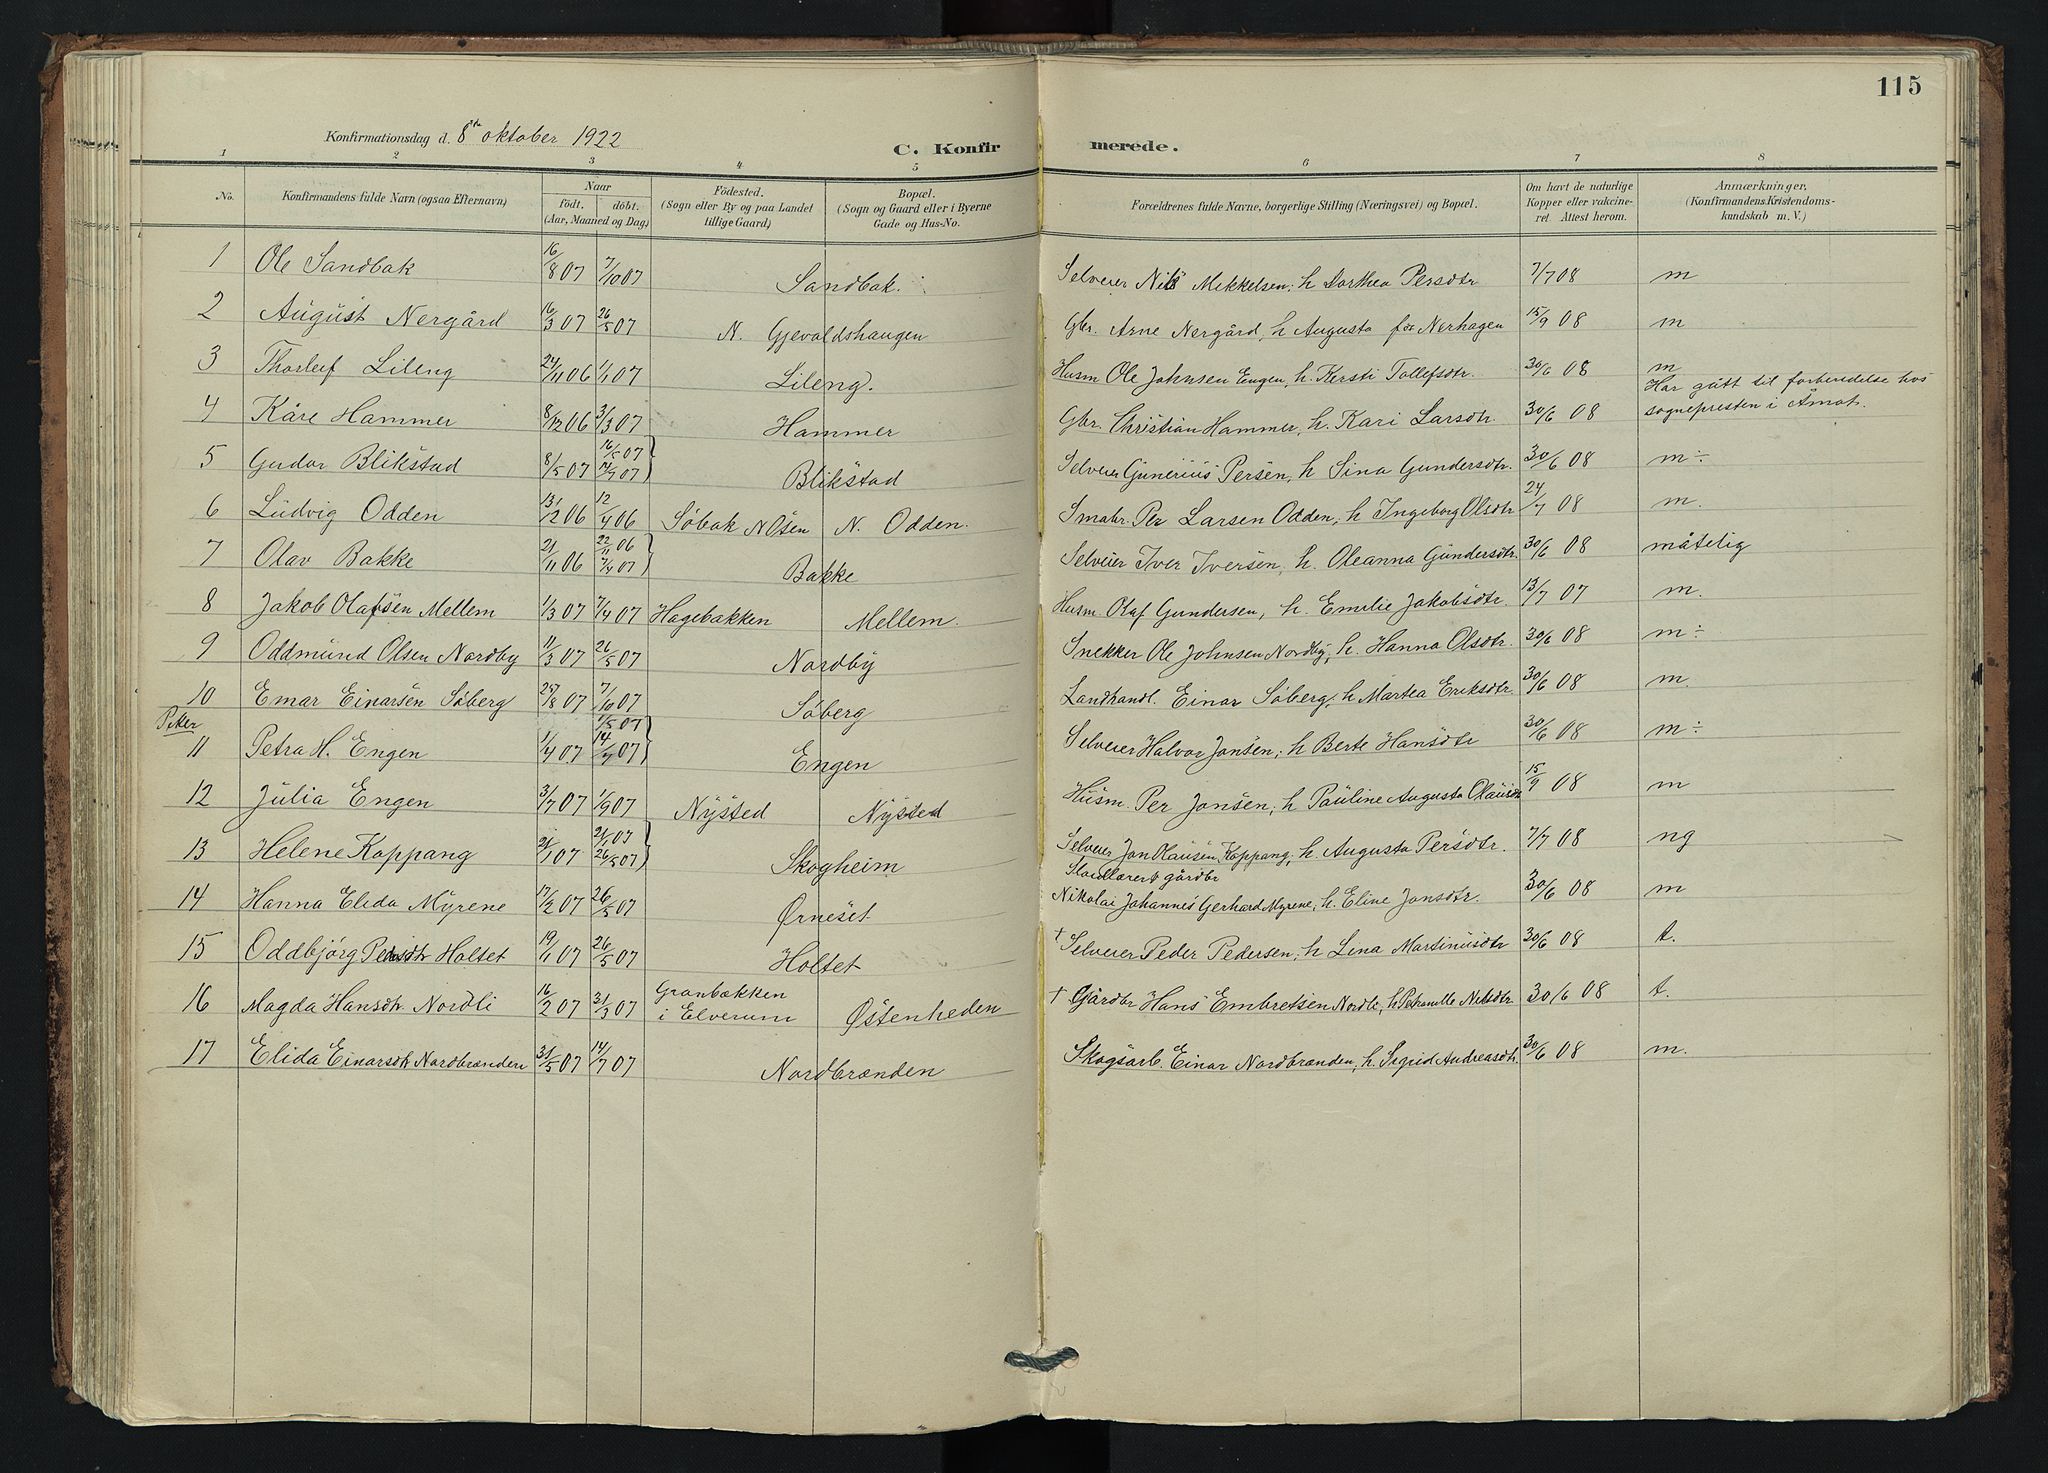 115
Konfirmationsdag d. 8de oktober 1922
C. Konfirmerede.
1 2 3 4 5 6 7 8
No. Konfirmandens fulde Navn (ogsaa Efternavn) Naar födt. döbt. (Aar, Maaned og Dag) Födested. (Sogn eller By og paa Landet tillige Gaard) Bopæl. (Sogn og Gaard eller i Byerne Gade og Hus-No. Forældrenes fulde Navne, borgerlige Stilling (Næringsvei) og Bopæl. Om havt de naturlige Kopper eller vakcineret. Attest herom. Anmærkninger. (Konfirmandens Kristendomskundskab m. V.)
1 Ole Sandbak 16/8 07 7/10 07 Sandbak. Selveier Nils Mikkelsen; h Dorthea Persdtr 7/7 08 m
2 August Nergård 16/3 07 26/5 07 N. Gjevaldshaugen Gbr. Arne Nergård, h Augusta før Nerhagen 15/9 08 m
3 Thorleif Lileng 24/11 06 1/1 07 Lileng. Husm Ole Johnsen Engen, h. Kersti Tollefsdtr. 30/6 08 m
Har gått til forberedelse hos
4 Kåre Hammer 8/12 06 3/3 07 Hammer Gbr. Christian Hammer, h. Kari Larsdtr 30/6 08 sognepresten i Åmot.
5 Gudor Blikstad 8/5 07 16/5 07 7/7 07 Blikstad Selveier Gunerius Persen, h Sina Gundersdtr. 30/6 08 m÷
6 Ludvig Odden 13/12 06 12/4 06 Søbak N Osen N. Odden. Smabr. Per Larsen Odden; h Ingeborg Olsdtr 24/7 08 m.
7 Olav Bakke 21/11 06 22/11 06 7/4 07 Bakke Selveier Iver Iversen, h. Oleanna Gundersdtr. 30/6 08 måtelig
8 Jakob Olafsen Mellem 1/3 07 7/4 07 Hagebakken Mellem. Husm. Olaf Gundersen, h. Emilie Jakobsdtr. 13/7 07 m.
9 Oddmund Olsen Nordby 11/3 07 26/5 07 Nordby Snekker Ole Johnsen Nordby, h. Hanna Olsdtr. 30/6 08 m÷
10 Emar Einarsen Søberg 25/8 07 7/10 07 Søberg Landhandl. Einar Søberg, h Martea Eriksdtr. 30/6 08 m.
Piker
11 Petra H. Engen 1/4 07 1/5 07 14/7 07 Engen Selveier Halvor Jonsen; h Berte Hansdtr 30/6 08 m÷
12 Julia Engen 3/7 07 1/9 07 Nysted Nysted Husm. Per Jonsen; h Pauline Augusta Olausdtr 15/9 08 m
13 Helene Koppang 21/1 07 21/1 07 26/5 07 Skogheim Selveier Jon Olausen Koppang, h. Augusta Persdtr. 7/7 08 ng
14 Hanna Elida Myrene 17/2 07 26/5 07 Ørneset gårdbr Nikolai Johannes Gerhard Myrene; h. Eline Jonsdtr. 30/6 08 m
15 Oddbjörg Pedersdtr Holtet 19/1 07 26/5 07 Holtet † Selveier Peder Pedersen; h Lina Martinusdtr 30/6 08 t.
16 Magda Hansdtr Nordli 16/2 07 31/3 07 Granbækken i Elverum Østenheden † Gårdbr Hans Embretsen Nordli, h Pernille Nilsdtr 30/6 08 t.
17 Elida Einarsdtr Nordbrænden 31/5 07 14/7 07 Nordbrænden Skogsarb. Einar Nordbrænden, h. Sigrid Andreasdtr. 30/6 08 m.